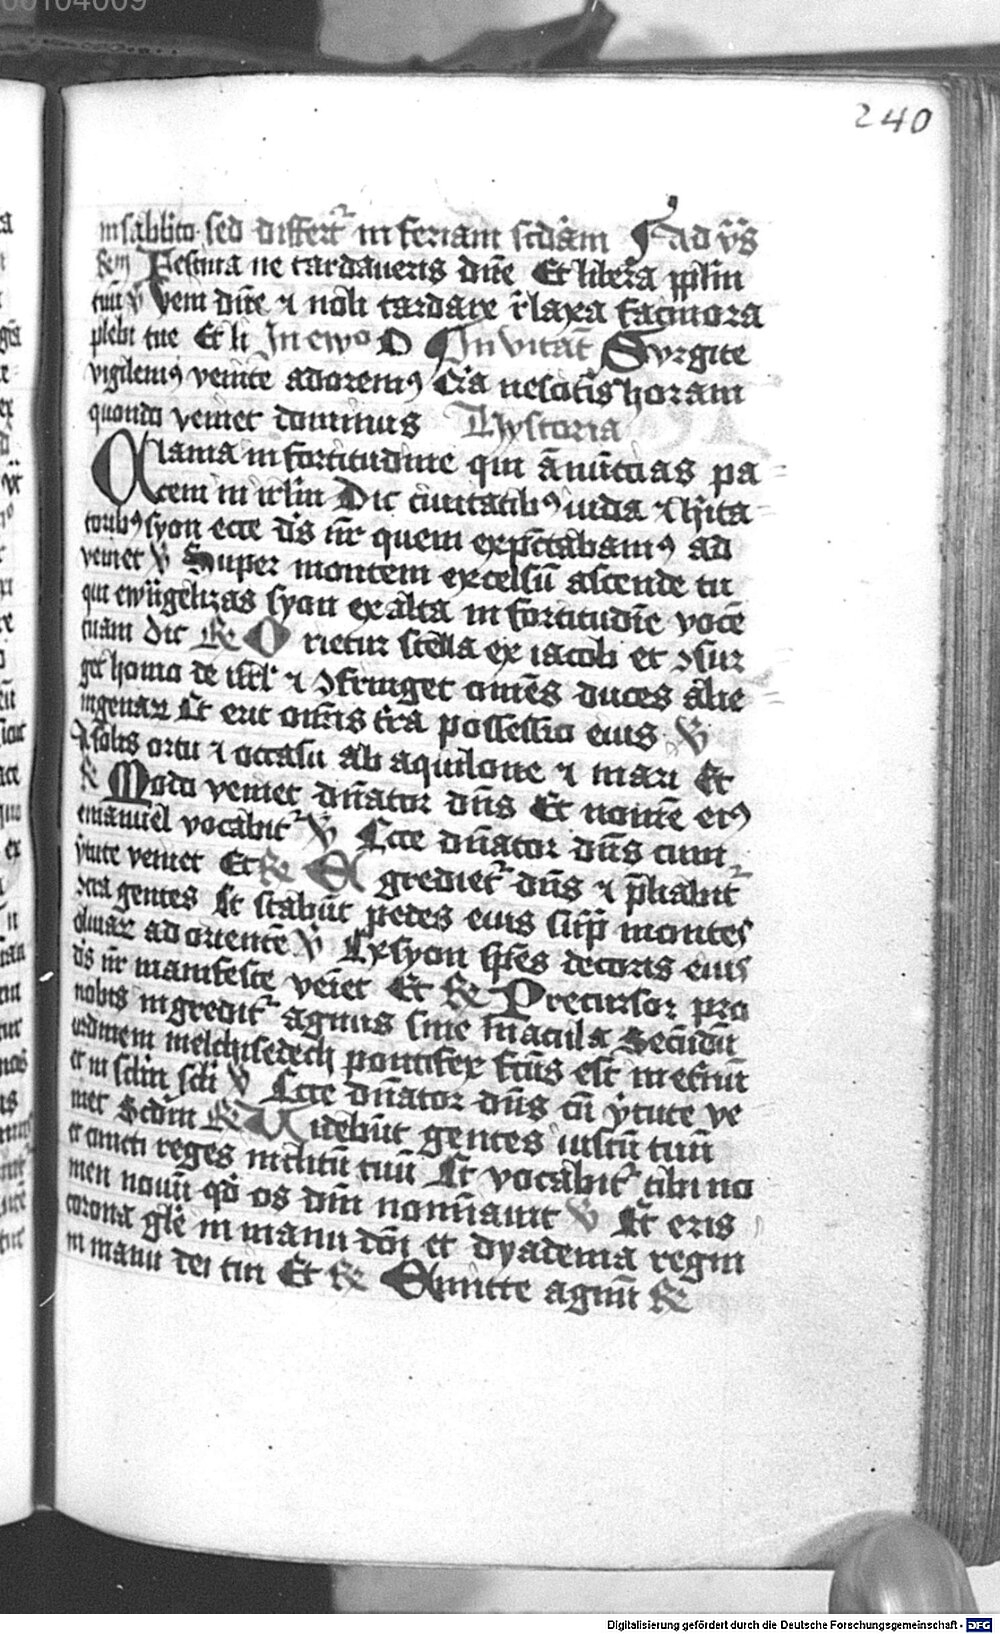 00104009
240
in sabbito sed differt͛ in feriam scd̄am ad v̄s
R̄m Festina ne tardaueris dn̄e Et libera pplm̄
tuū v̄ Veni dn̄e ⁊ noli tardare r̄laxa facinora
plebi tue Et li In ewo O Inuitat̄ Surgite
vigilemꝰ venite adoremꝰ q̄a nescitis horam
quando veniet dominus Hystoria
Clama in fortitudine qui ānūctias pa-
cem in irlm̄ Dic ciuitatibꝰ iuda ⁊ hīta-
toribꝰ syon ecce ds̄ nr̄ quem exp̄ctabamꝰ ad
veniet v̄ Super montem excelsū ascende tu
qui ewāgelizas syon exalta in fortitudīe vocē
tuam Dic R̄ Orietur stella ex iacob et ꝯsur
get homo de isrl̄ ⁊ ꝯfringet omēs duces alie-
nigenaꝝ Et erit oīnis tr̄a possessio eius v̄
A solis ortu ⁊ occasu ab aquilone ⁊ mari Et
R̄ Modo veniet dn̄ator dn̄s Et nomē eiꝰ
emanuel vocabit͛ v̄ Ecce dn̄ator dn̄s cum
v̄tute veniet Et R̄ Egrediet͛ dn̄s ⁊ p̄liabit͛
ꝯtra gentes Et stabūt pedes eius sup̄ montes
oliuaꝝ ad orientē v̄ Ex syon spēs decoris eius
ds̄ nr̄ manifeste veīet Et R̄ Precursor pro
nobis ingredit͛ agnus sine macula Secūdū
ordinem melchisedech pontifex fc̄us est in et̄nū
et in sclm̄ scli v̄ Ecce dn̄ator dn̄s cū v̄tute ve
niet Scdm̄ R̄ Uidebūt gentes iustū tuū
et cuncti reges inclitū tuū Et vocabit͛ tibi no
men nouū qd̄ os dn̄i nomīauit v̄ Et eris
corona gl̄e in manu dn̄i et dyadema regni
in manu dei tui Et R̄ Emitte agnū R̄
Digitalisierung gefördert durch die Deutsche Forschungsgemeinschaft - DFG